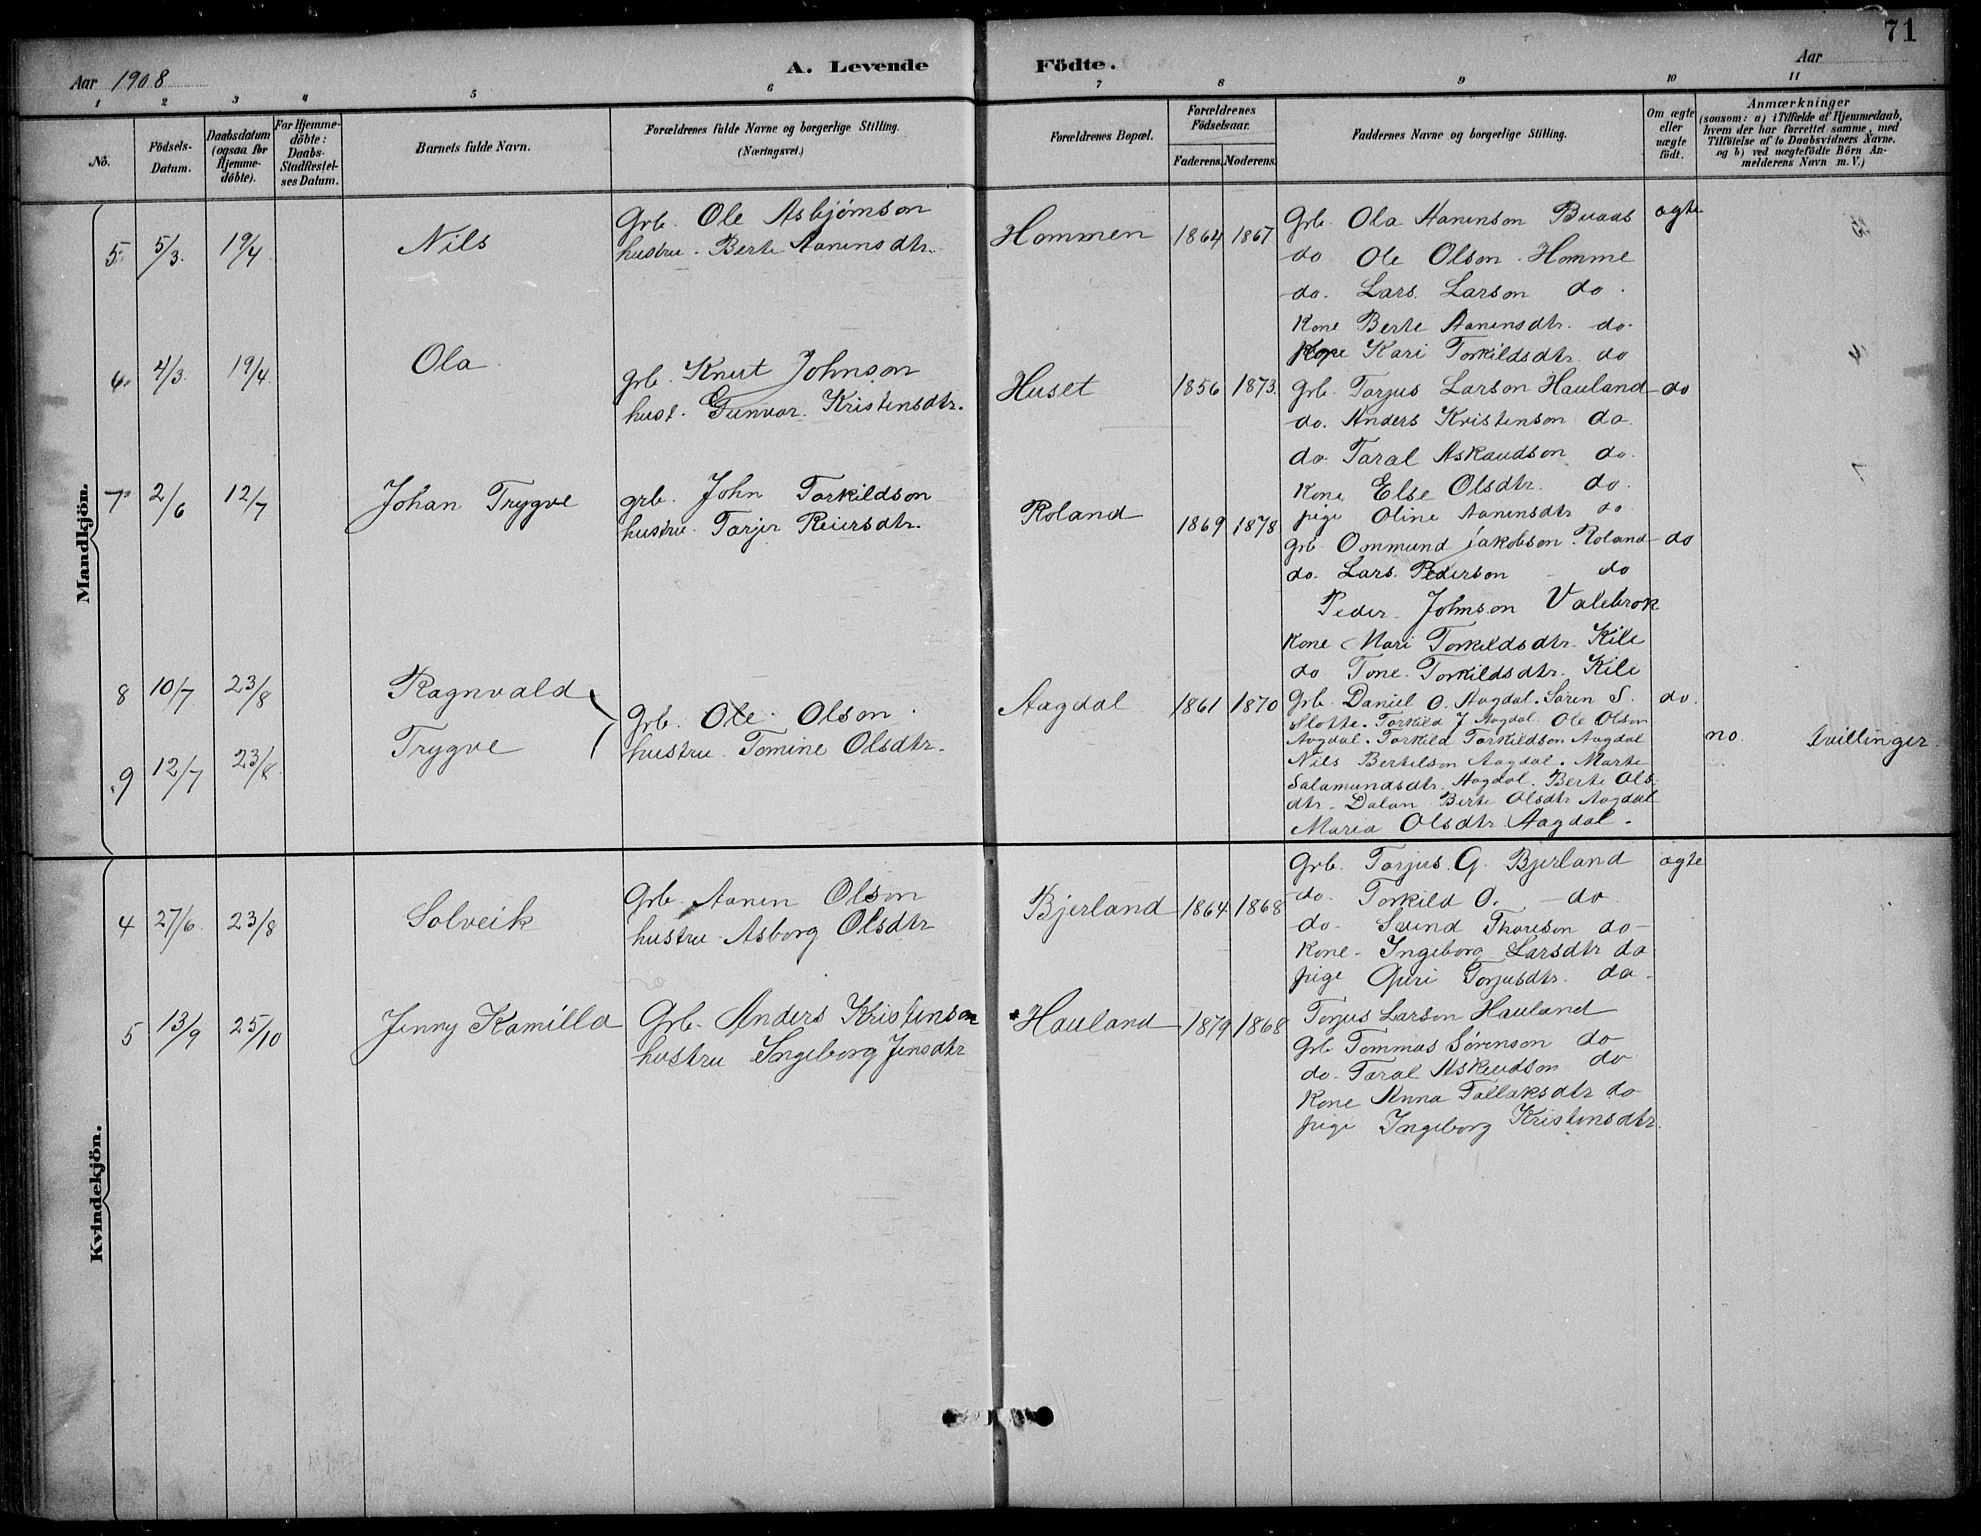 71
Aar 1908
A. Levende Födte.
Aar
1 2 3 4 5 6 7 8 9 10 11
No.
Födsels-Datum.
Daabsdatum (ogsaa for Hjemme-döbte).
For Hjemme-döbte: Daabs-Stadfæstel-ses Datum.
Barnets fulde Navn.
Forældrenes fulde Navne og borgerlige Stilling.
(Næringsvei.)
Forældrenes Bopæl.
Forældrenes Födselsaar.
Faderens. Moderens.
Faddernes Navne og borgerlige Stilling.
Om ægte eller uægte födt.
Anmærkninger
(saasom: a) i Tilfælde af Hjemmedaab,
hvem der har forrettet samme, med
Tilföielse af to Daabsvidners Navne,
og b) ved uægtefödte Börn An-
melderens Navn m. V.)
Mandkjön.
5. 5/3. 19/4 Nils
Grb. Ole Asbjörnson
hustru. Berte Aanensdtr.
Hommen 1864 1867
Grb. Ola Aanenson Buaas ægte
do Ole Olson. Homme
do. Lars Larson do.
Kone Berte Aanensdtr. do.
Kone Kari Torkildsdtr. do
6. 4/3. 19/4 Ola
grb. Knut Johnson
hust. Gunvor. Kristensdtr.
Huset 1856 1873.
grb. Torjus Larson Hauland do
do. Anders Kristenson do.
do. Taral Askaudson do.
Kone Else Olsdtr. do.
pige Oline Aanensdtr do
7. 2/6 12/7 Johan Trygve
grb. John Torkildson
hustru. Torjer Reiersdtr.
Roland 1869 1878
grb. Ommund Jakobson Roland do
do. Lars. Pederson do
Peder Johnson Valebrok
Kone Mari Torkildsdtr. Kile
do Tone Torkildsdtr. Kile
8 10/7 23/8 Ragnvald
9 12/7 23/8. Trygve
Grb. Ole. Olson.
hustru. Tomine Olsdtr.
Aagdal 1861 1870
Grb. Daniel O. Aagdal. Sören S. do.
Slotte. Torkild J Aagdal. Ole Olson
Aagdal. Torkild Torkildson Aagdal
Nils Bertelson Aagdal. Marte
Salamundsdtr. Aagdal. Berte Ols-
dtr. Dalan Berte Olsdtr Aagdal
Maria Olsdtr Aagdal.
no. tvillinger.
Kvindekjön.
4 27/6. 23/8 Solveik
Grb. Aanen Olson
hustru. Asborg Olsdtr
Bjerland 1864 1868
Grb. Torjus. G. Bjerland ægte
do. Torkild O. do
do. Svend Thoreson do
Kone. Ingeborg Larsdtr do
pige Guri Torjusdtr. do.
5 13/9 25/10 Jenny Kamilla
Grb. Anders Kristenson
hustru Ingeborg Jensdtr
Hauland 1879 1868
Torjus Larson Hauland
Grb Tommas Sörenson do
do. Taral Askeudson do
Kone Anna Tallaksdtr do
pige Ingeborg Kristensdtr.